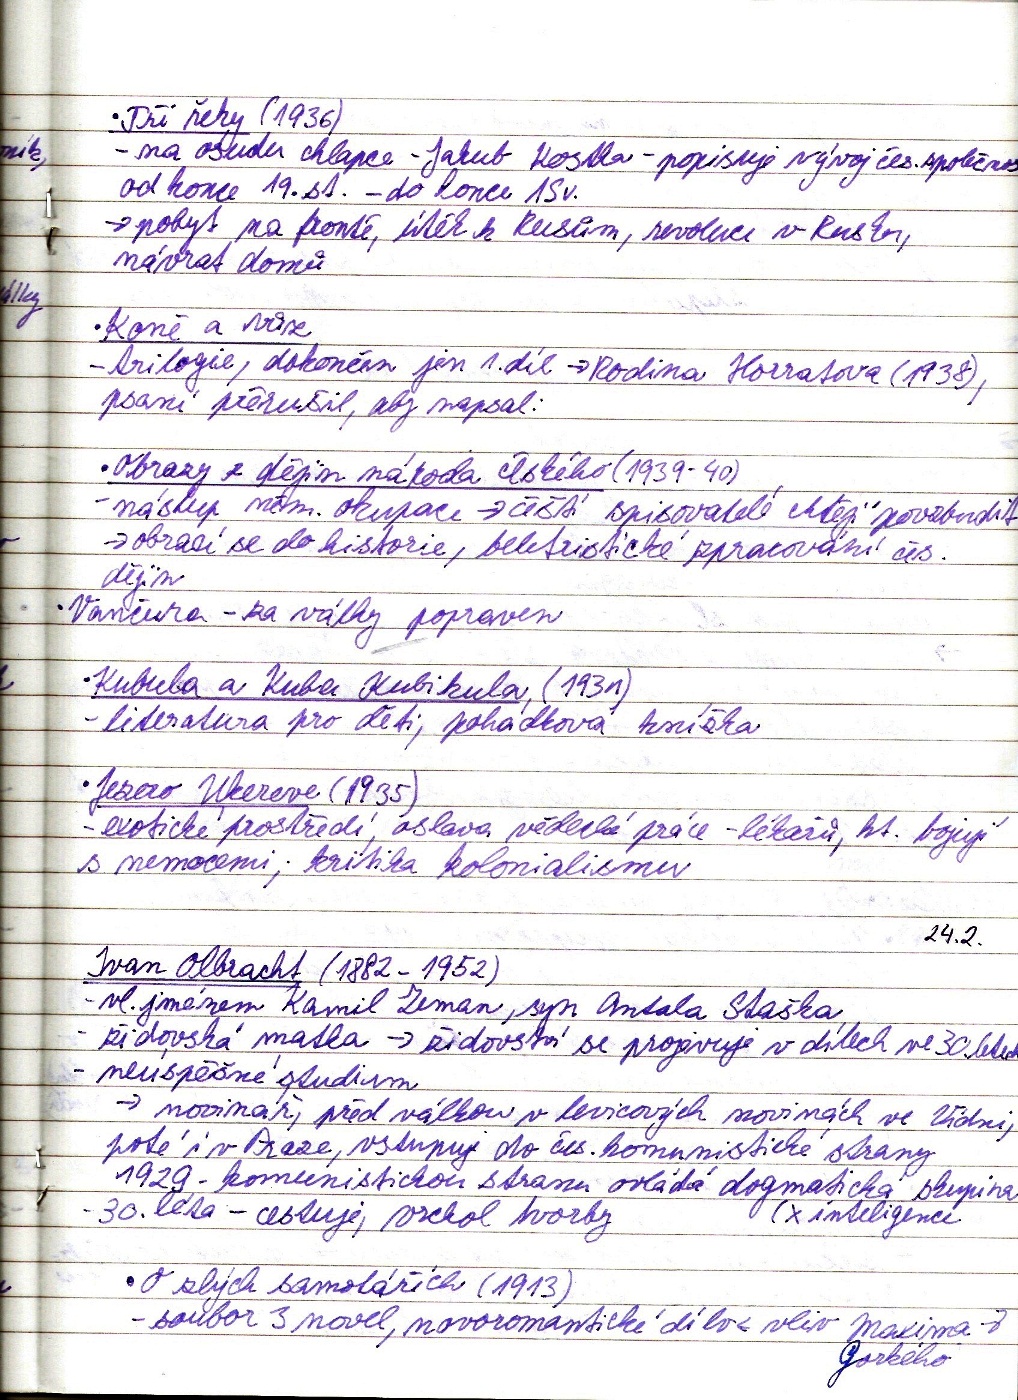 • Tři řeky (1936)
- na osudu chlapce - Jakub Kostka - popisuje vývoj čes. společnos
od konce 19. st. - do konce 1Sv.
→ pobyt na frontě, útěk k Rusům, revoluce v Rusku,
návrat domů
• Koně a vůz
- trilogie, dokončen jen 1. díl → Rodina Horvatova (1938),
psaní přerušil, aby napsal:
• Obrazy z dějin národa českého (1939-40)
- nástup něm. okupace → čeští spisovatelé chtějí povzbudit
→ obrací se do historie, beletristické zpracování čes.
dějin
• Vančura - za války popraven
• Kubula a Kuba Kubikula, (1931)
- literatura pro děti, pohádková knížka
• Jezero Ukereve (1935)
- exotické prostředí, oslava vědecké práce - lékařů, kt. bojují
s nemocemi; kritika kolonialismu
24.2.
Ivan Olbracht (1882 - 1952)
- vl. jménem Kamil Zeman, syn Antala Staška
- židovská matka → židovství se projevuje v dílech ve 30. letech
- neúspěšné studium
→ novinář, před válkou v levicových novinách ve Vídni,
poté i v Praze, vstupuje do čes. komunistické strany
1929 - komunistickou stranu ovládá dogmatická skupina
- 30. léta - cestuje, vrchol tvorby (x inteligence
• O zlých samotářích (1913)
- soubor 3 novel, novoromantické dílo < vliv Maxima →
Gorkého